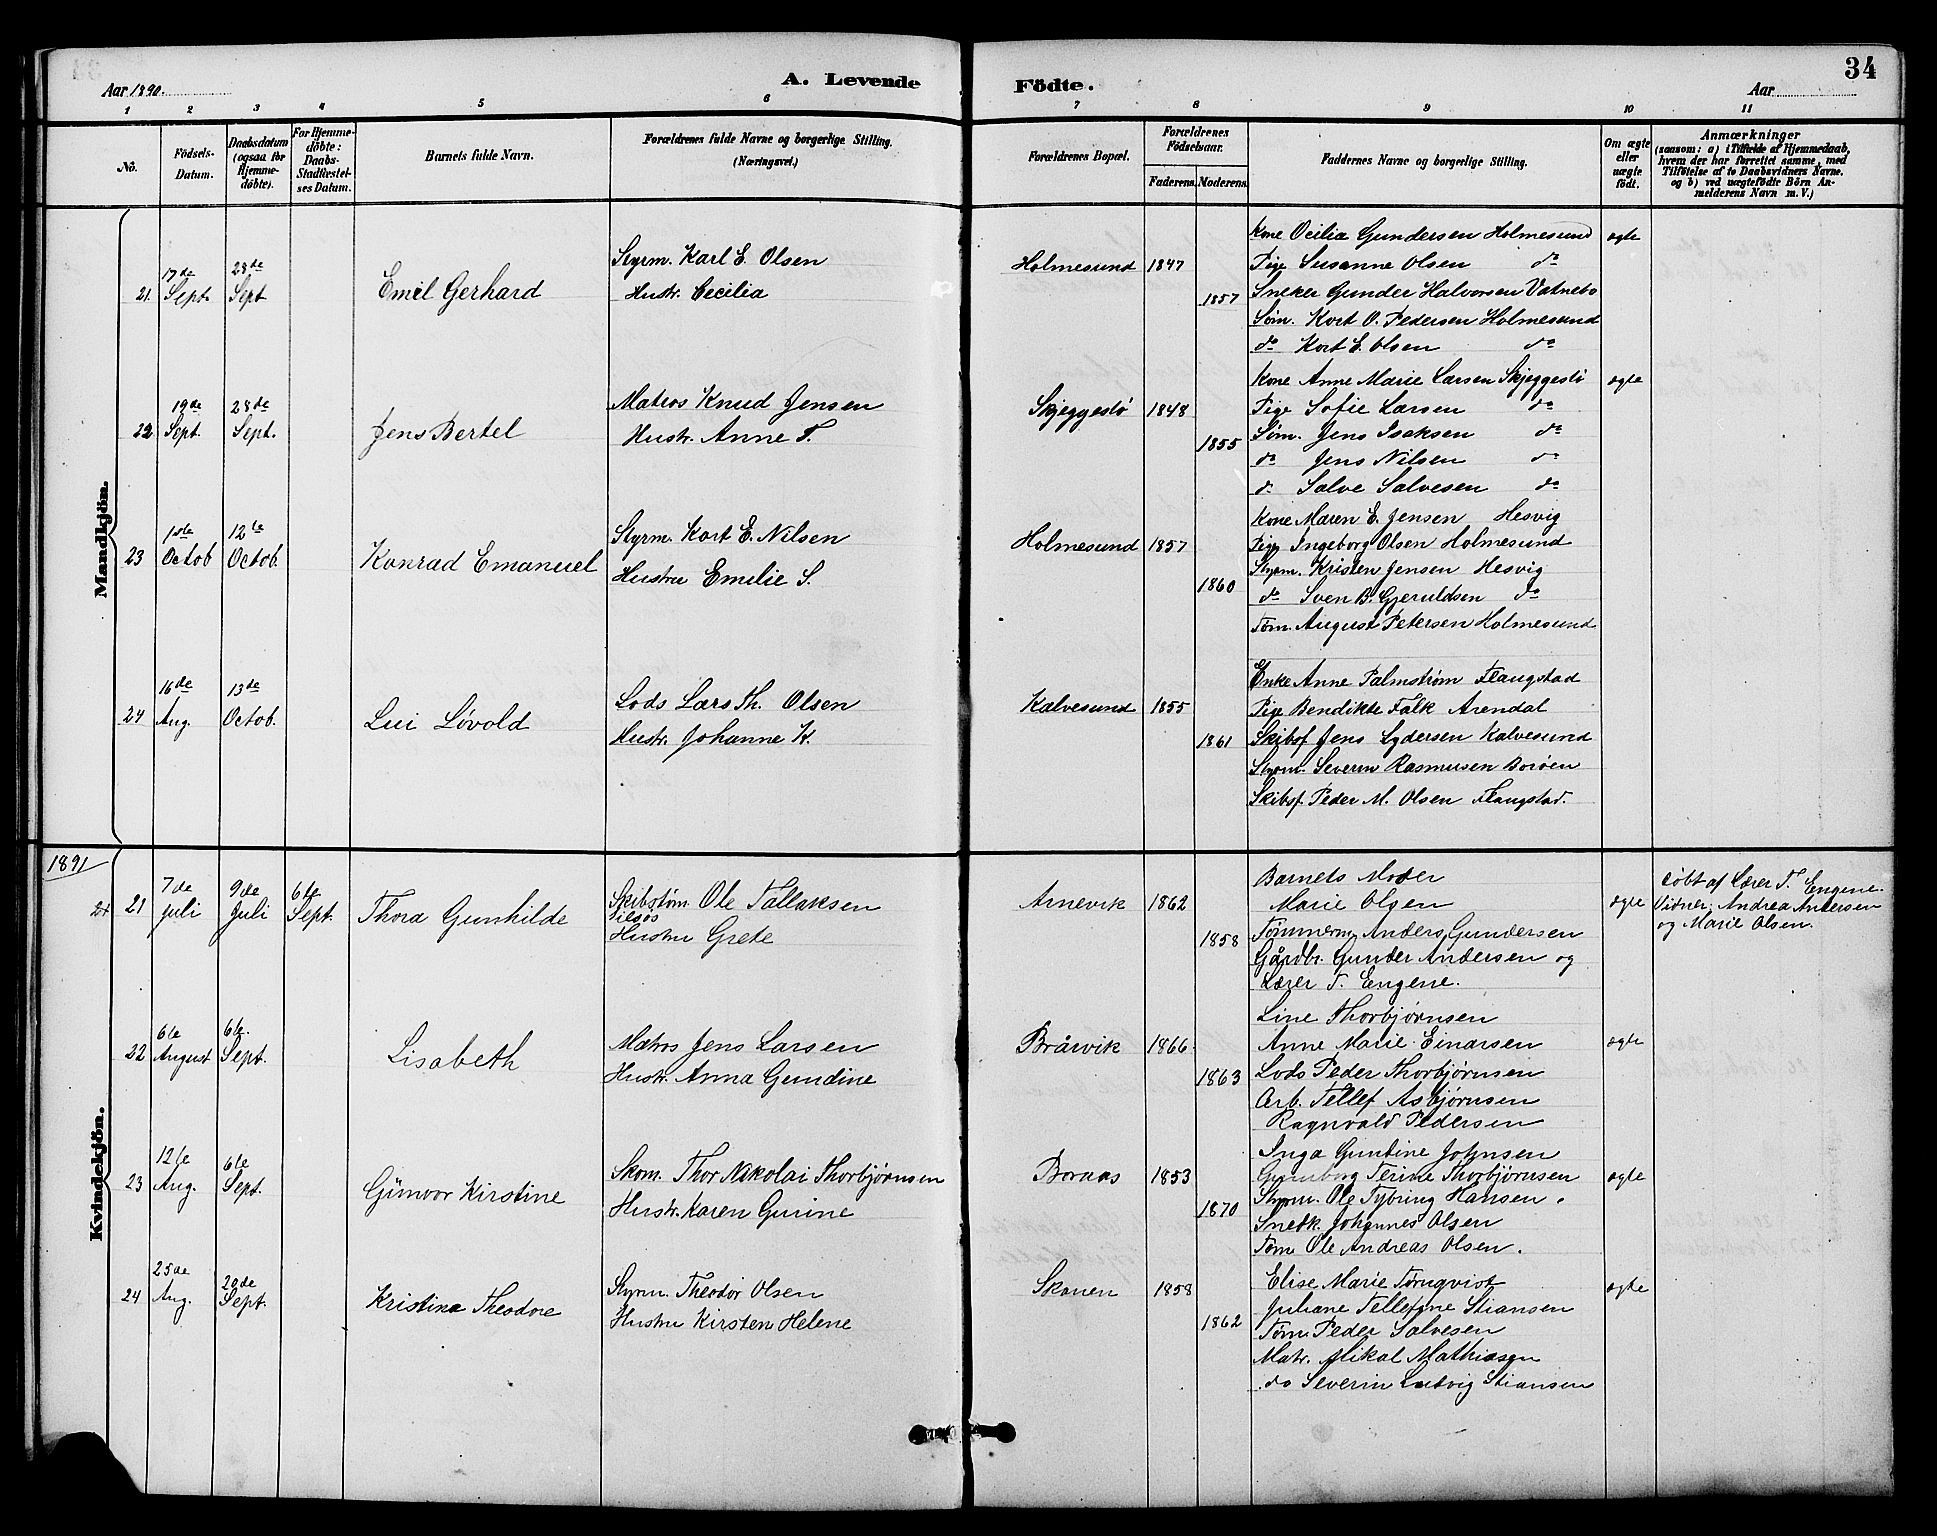 Aar 1890.
A. Levende
Födte.
Aar
34
1 2 3 4 5 6 7 8 9 10 11
No.
Födsels-Datum.
Daabsdatum (ogsaa for Hjemme-döbte).
For Hjemme-döbte: Daabs-Stadfæstel-ses Datum.
Barnets fulde Navn.
Forældrenes fulde Navne og borgerlige Stilling.
(Næringsvei.)
Forældrenes Bopæl.
Forældrenes Födselsaar.
Faderens. Moderens.
Faddernes Navne og borgerlige Stilling.
Om ægte eller uægte födt.
Anmærkninger
(saasom: a) i Tilfælde af Hjemmedaab, hvem der har forrettet samme, med Tilföielse af to Daabsvidners Navne, og b) ved uægtefödte Börn An-melderens Navn m. V.)
Mandkjön.
21. 17de Sept. 28de Sept Emil Gerhard
Styrm. Karl E. Olsen
Hustr. Cecilia
Holmesund 1847 1857
Kone Ocilia Gundersen Holmesund ægte
Pige Susanne Olsen do
Sneker Gunder Halvorsen Vatnebo
Søm. Kort O. Pedersen Holmesund
do Kort E. Olsen do
22 19de Sept. 28de Sept. Jens Bertel
Matros Knud Jensen
Hustr. Anne T.
Skjeggestö 1848 1855
Kone Anne Marie Larsen Skjeggestö ægte
Pige Sofie Larsen do
Søm. Jens Isaksen do
do Jens Nilsen do
do Salve Salvesen do
23 1ste Octob 12te Octob. Konrad Emanuel
Styrm. Kort E. Nilsen
Hustru Emilie S.
Holmesund 1857 1860
Kone Maren E. Jensen Hesvig
Pige Ingeborg Olsen Holmesund
Styrm. Kristen Jensen Hesvig
do Sven B. Gjeruldsen do
Tøm. August Petersen Holmesund
24 16de Aug. 13de Octob. Lui Lövold
Lods Lars Th. Olsen
Hustr. Johanne K.
Kalvesund 1855 1861
Enke Anne Palmstrøm Flangstad
Pige Bendikte Falk Arendal
Skibsf Jens Lydersen Kalvesund
Styrm. Severin Rasmusen Boröen
Skibsf. Peder M. Olsen Flangstad.
1891
Kvindekjön.
21 7de Juli 9de Juli 6te Sept. Thora Gunhilde
Skibstöm. Ole Tallaksen
Hustru Grete
Arnevik 1862 1858
Barnets Moder
Marie Olsen
Tømmerm Anders Gundersen
Gårdbr. Gunder Andersen og
Lærer T. Engene.
ægte
Döbt af Lærer T. Engene.
Vidner: Andrea Andersen
og Marie Olsen.
22 6te August 6te Sept. Lisabeth
Matros Jens Larsen
Hustr. Anna Gundine
Brårvik 1866 1863
Line Thorbjørnsen
Anne Marie Einarsen ægte
Lods Peder Thorbjørnsen
Arb. Tellef Asbjørnsen
Ragnvald Pedersen
23 12te Aug. 6te Sept. Günvor Kirstine
Skom. Thor Nikolai Thorbjørnsen
Hustr. Karen Gurine
Boraas 1853 1870
Inga Gundine Johnsen
Gunborg Terine Thorbjørnsen ægte
Styrm. Ole Tybring Hansen.
Snedk. Johannes Olsen
Tøm Ole Andreas Olsen.
24 25de Aug. 20de Sept. Kristina Theodore
Styrm. Theodor Olsen
Hustru Kirsten Helene
Skonen 1858 1862
Elise Marie Tørnqvist ægte
Juliane Tellefine Stiansen
Tøm. Peder Salvesen
Matr. Mikal Mathiasen
do Severin Ludvig Stiansen